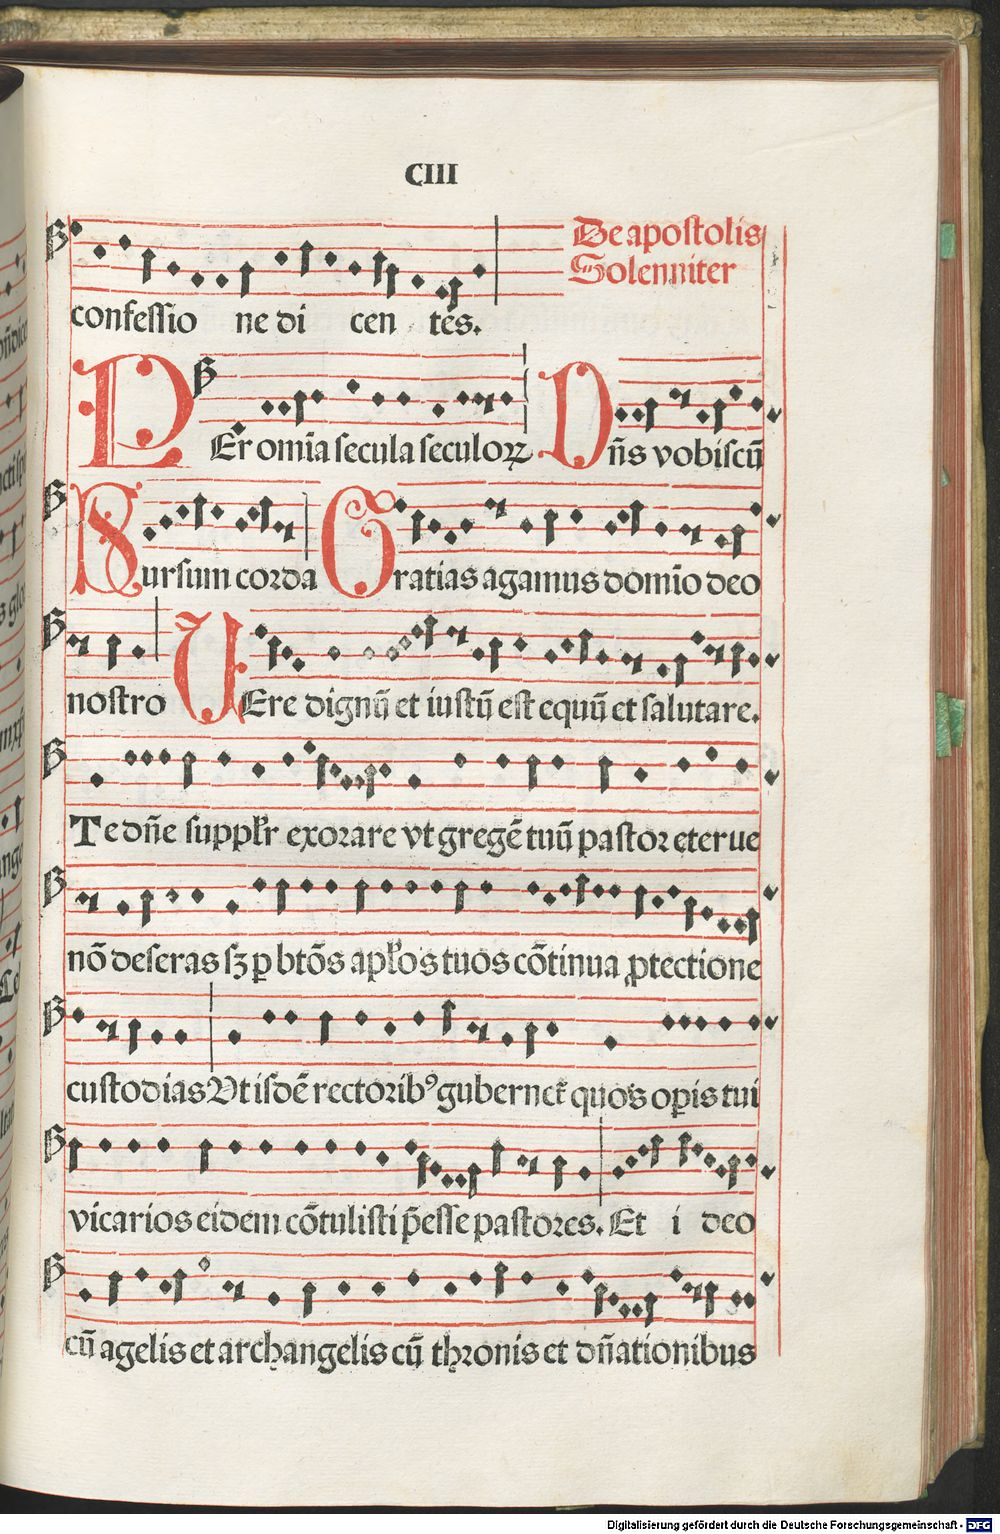 CIII
De apostolis
Solenniter
confessio ne di cen tes.
PEr om̄ia secula seculoꝝ Dn̄s vobiscū
Sursum corda Gratias agamus dom̄io deo
nostro VEre dignū et iustū est equū et salutare.
Te dn̄e supplr̄ exorare vt gregē tuū pastor eterne
nō deseras sꝫ p btōs apłos tuos cōtinua ꝓtectione
custodias Vt isdē rectoribꝰ gubernet̄ quos opis tui
vicarios eidem cōtulisti p̄esse pastores. Et i deo
cū agelis et archangelis cū thronis et dn̄ationibus
Digitalisierung gefördert durch die Deutsche Forschungsgemeinschaft - DFG